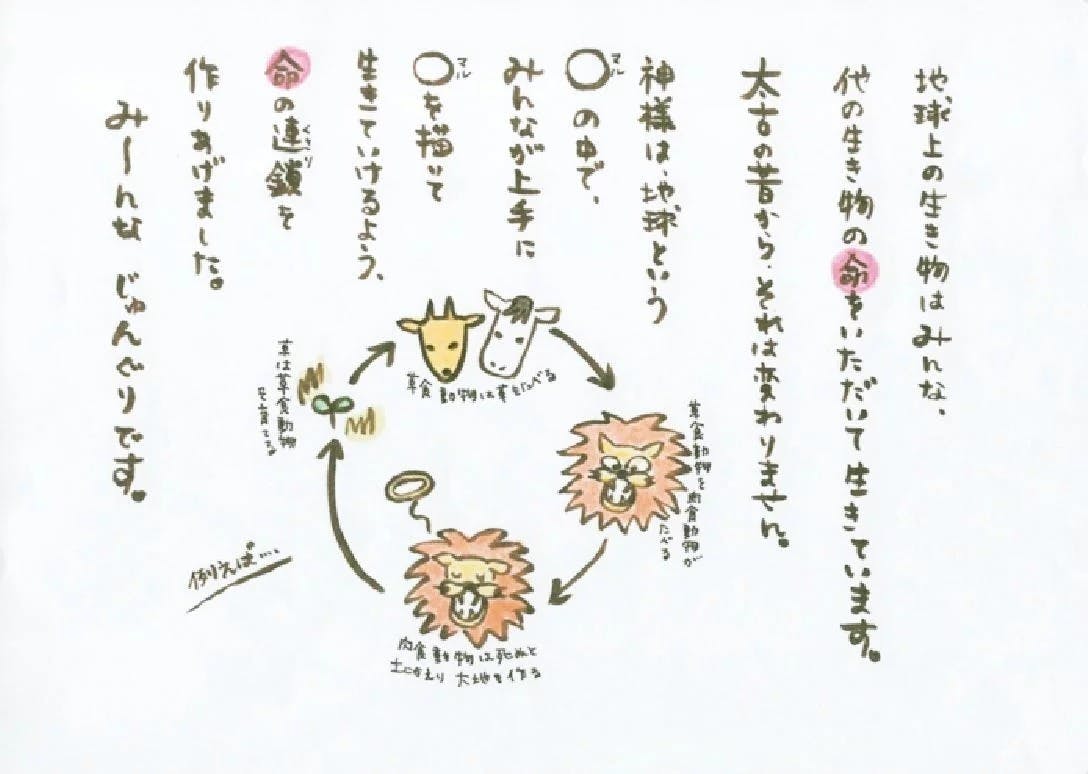 地球上の生き物はみんな、
代の生き物の命をいただいて生きています。
太古の昔から、それは変わりません。
神様は、地球という
〇マルの中で、
みんなが上手に
〇マルを描いて
生きていけるよう、
命の連鎖くさりを
作りあげました。
みーんな じゅんぐりです。
例えば…
草食動物は草をたべる
草食動物を肉食動物が
たべる
肉食動物は死ぬと
土にかえり 大地を作る
草は草食動物
を育てる